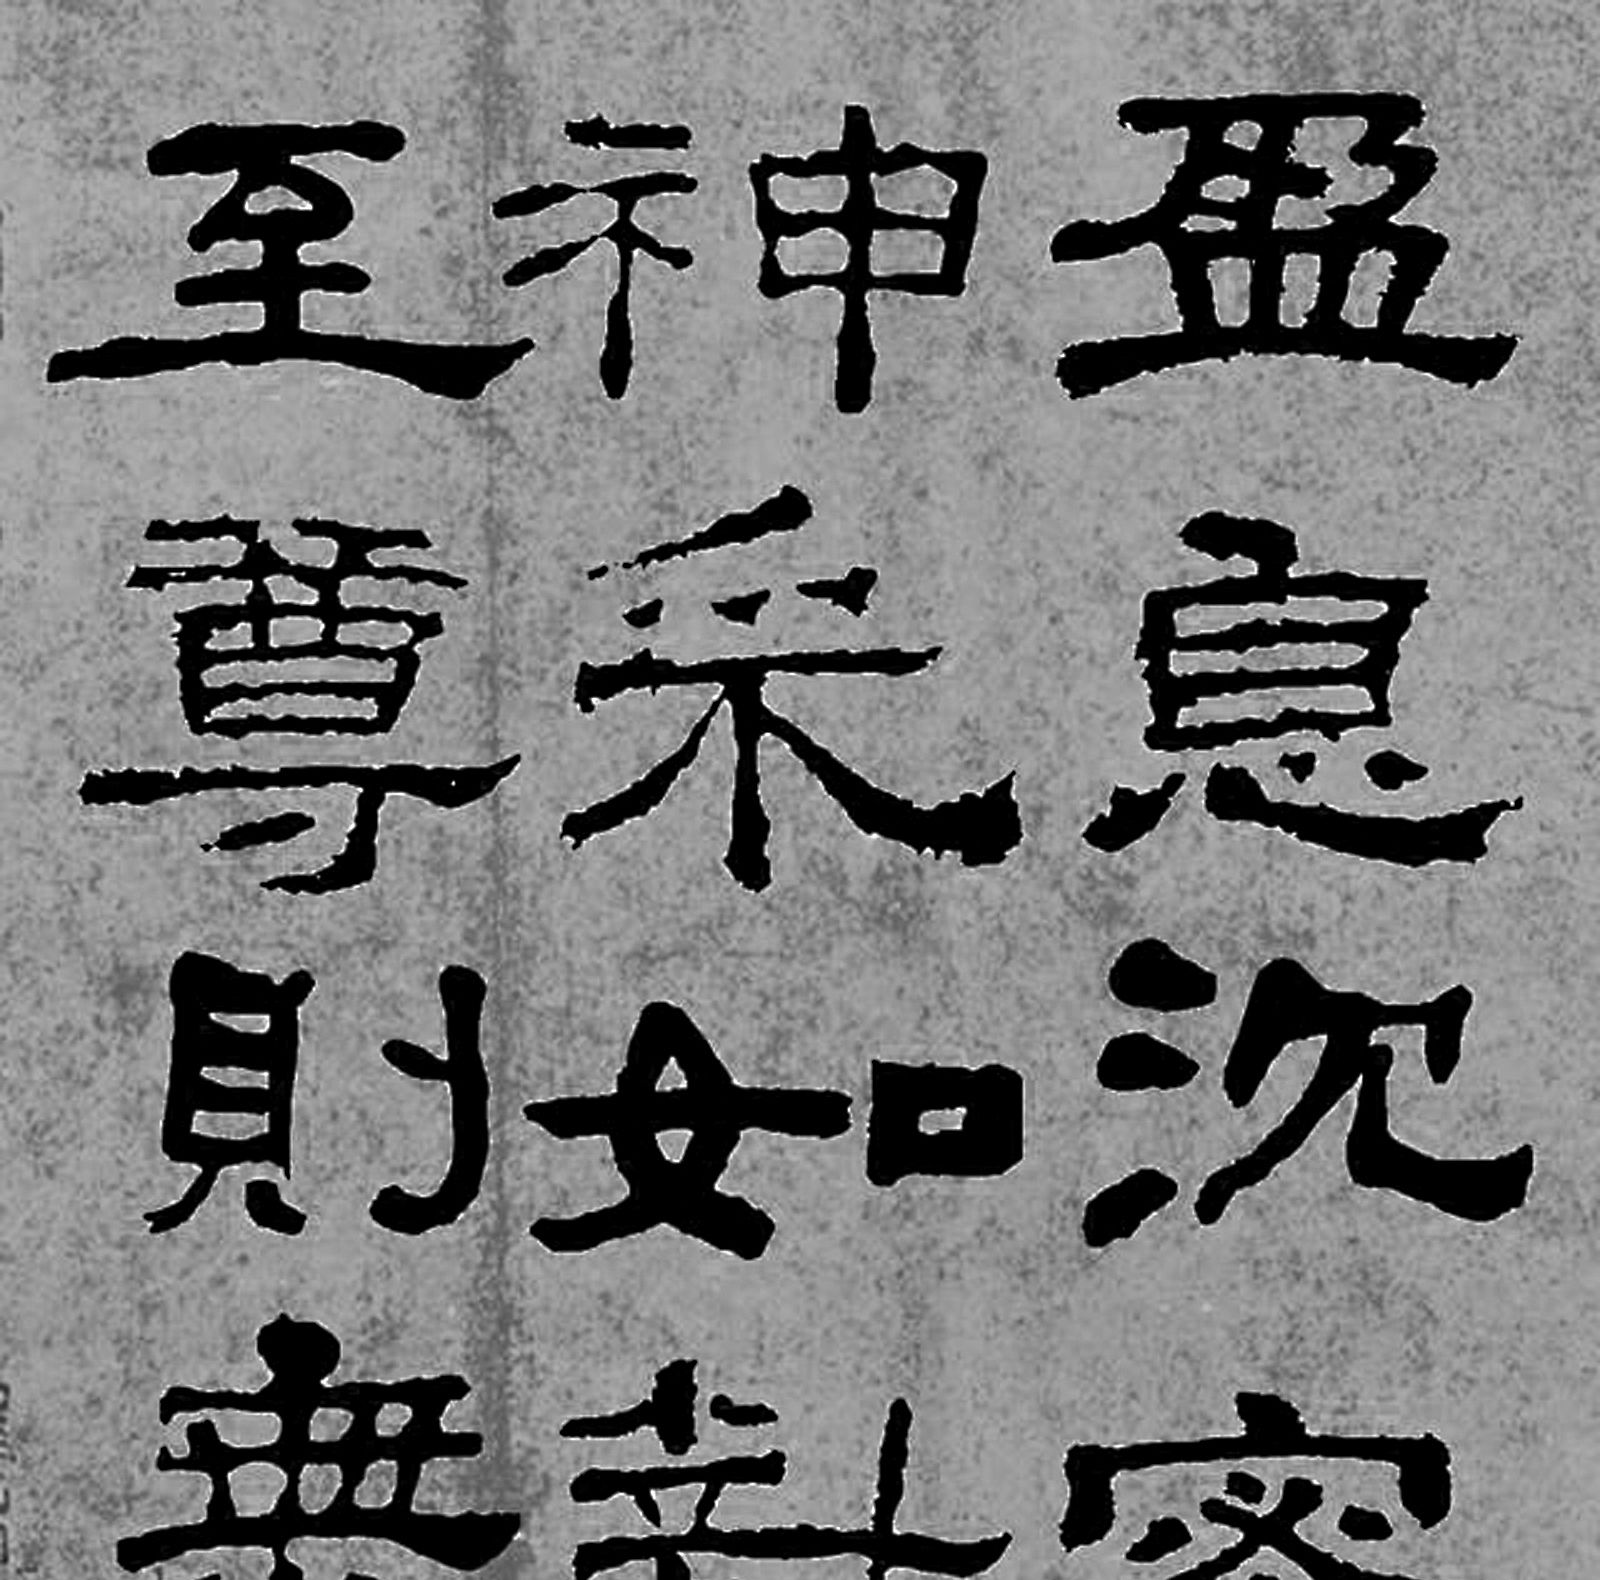 盈息沈密
神采如對
至尊則無